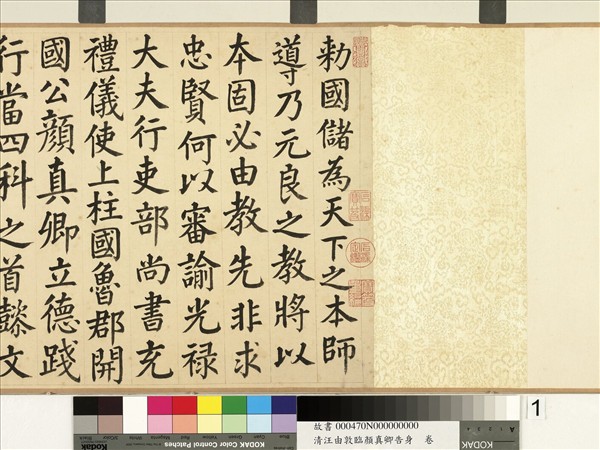 勅國儲為天下之本師
導乃元良之教將以
本固必由教先非求
忠賢何以審諭光禄
大夫行吏部尚書充
禮儀使上柱國魯郡開
國公顔真卿立德踐
行當四科之首懿文
故書 000470N000000000
清汪由敦臨顏真卿告身 卷
KODAK Color Control Patches
KODAK
1